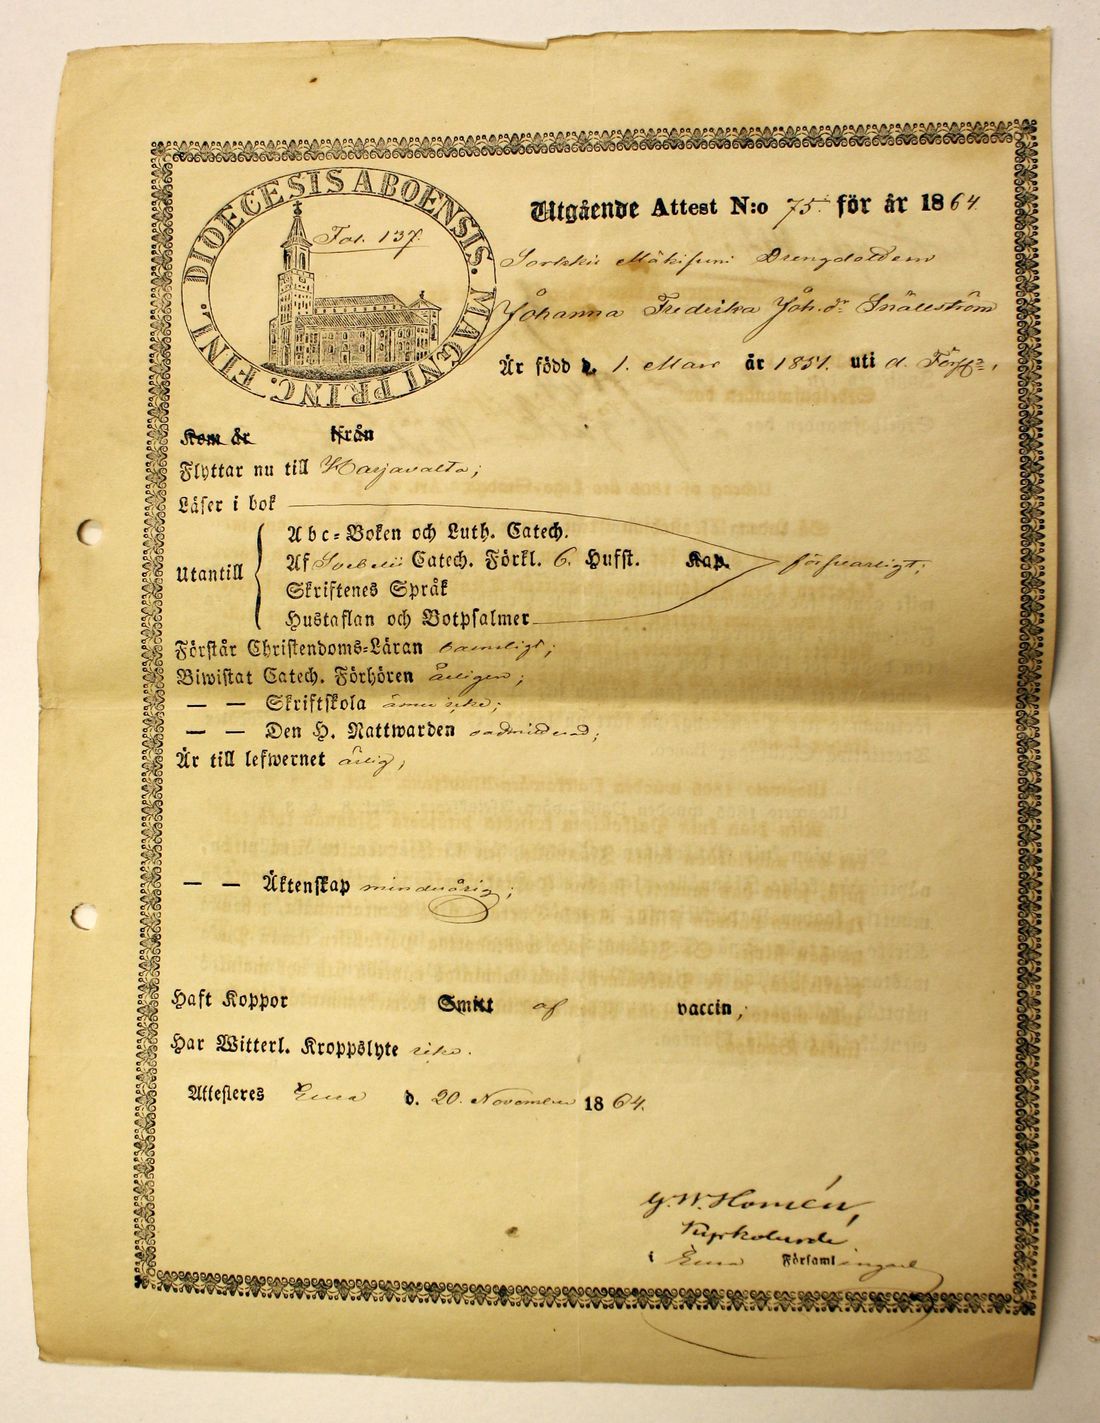 DIOECESIS ABOENSIS. MAGNI PRINC. FINL.
Fol. 137.
Utgående Attest N:o 75. för år 1864.
Sorkkis Mäkisuni Drengdottern
Johanna Fredrika Joh. dr Snällström
Är född d. 1. Mars år 1851. uti d. Förs:n,
Kom år ifrån
Flyttar nu till Harjavalta;
Läser i bok
Abc-Boken och Luth. Catech.
Utantill
Af Svebelii Catech. Förkl. 6. Hufst. Kap. försvarligt;
Skriftenes Språk
Hustaflan och Botpsalmer
Förstår Christendoms-Läran barnsligt;
Biwistat Catech. Förhören årligen;
— — Skriftskola ännu icke;
— — Den H. Nattwarden oadmitterad;
Är till lefwernet ärlig;
— — Äktenskap minderårig;
Haft Koppor Smitt af vaccin;
Har Witterl. Kroppslyte icke.
Attesteres Eura d. 20. November 1864.
G. W. Homén,
Kyrkoherde
i Eura Församlingar